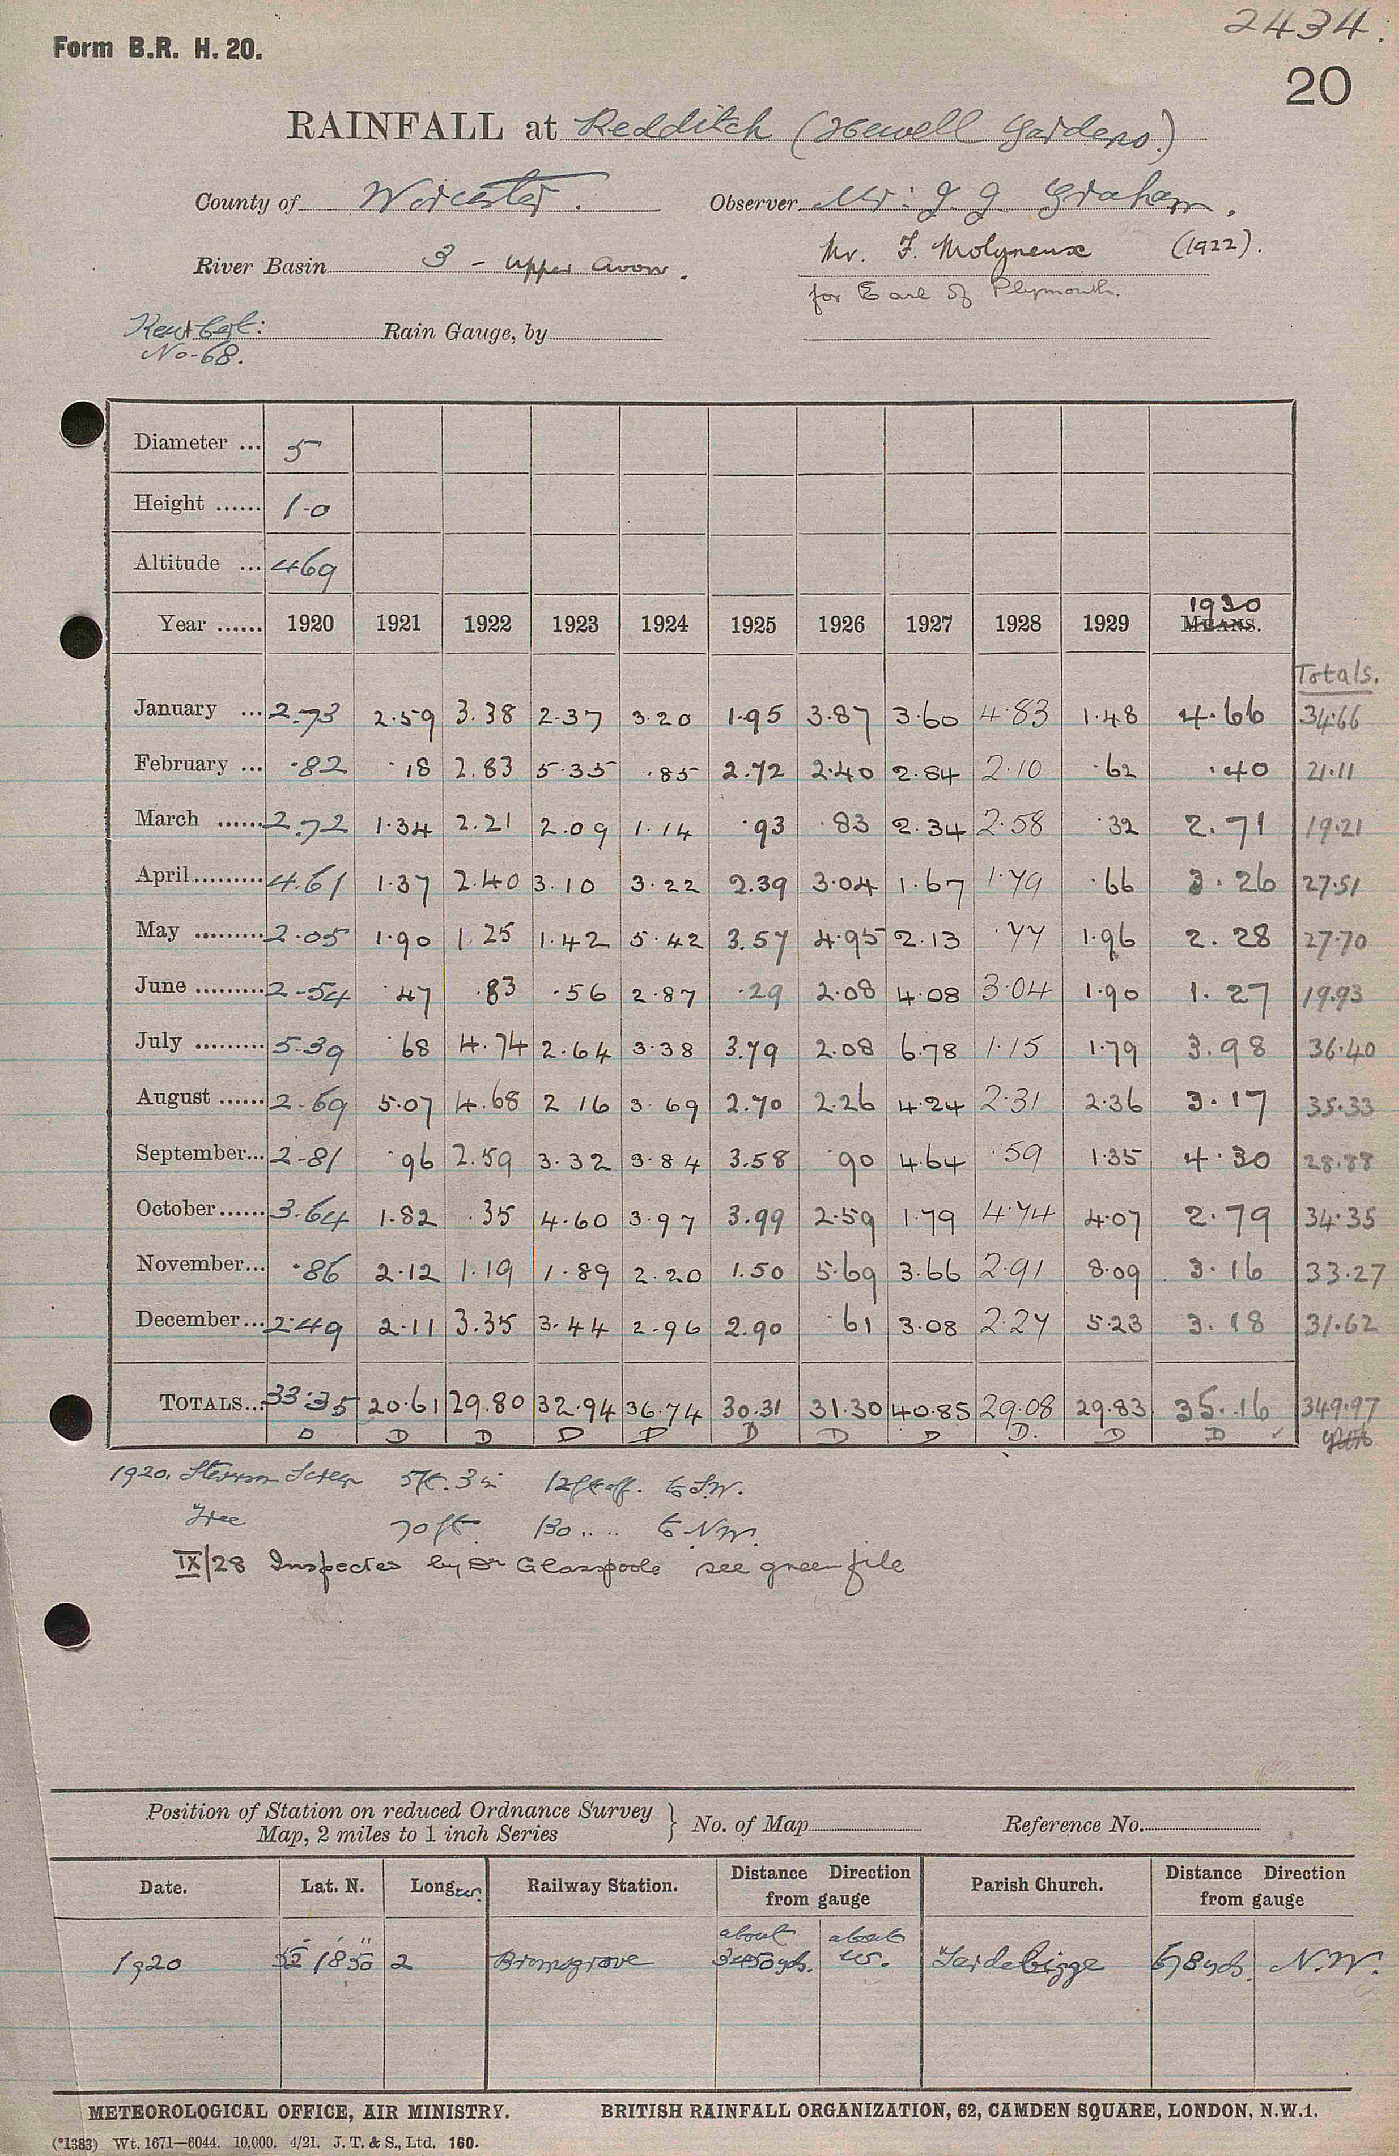 2434.
Form B.R. H. 20.
20
RAINFALL at Redditch (Hewell Gardens.)
County of Worcester. Observer Mr. J. G. Graham.
River Basin 3 - Upper Avon. Mr. F. Molyneux (1922).
for Earl of Plymouth.
Kew Cert: Rain Gauge, by
No-68.
Diameter ... 5
Height ...... 1-0
Altitude ... 469
Year ...... 1920 1921 1922 1923 1924 1925 1926 1927 1928 1929 1930 MEANS.
Totals.
January ... 2.73 2.59 3.38 2.37 3.20 1.95 3.87 3.60 4.83 1.48 4.66 34.66
February ... .82 .18 2.83 5.35 .85 2.72 2.40 2.84 2.10 .62 .40 21.11
March ...... 2.72 1.34 2.21 2.09 1.14 .93 .83 2.34 2.58 .32 2.71 19.21
April......... 4.61 1.37 2.40 3.10 3.22 2.39 3.04 1.67 1.79 .66 3.26 27.51
May ......... 2.05 1.90 1.25 1.42 5.42 3.57 4.95 2.13 .77 1.96 2.28 27.70
June ......... 2.54 .47 .83 .56 2.87 .29 2.08 4.08 3.04 1.90 1.27 19.93
July ......... 5.39 .68 4.74 2.64 3.38 3.79 2.08 6.78 1.15 1.79 3.98 36.40
August ...... 2.69 5.07 4.68 2.16 3.69 2.70 2.26 4.24 2.31 2.36 3.17 35.33
September... 2.81 .96 2.59 3.32 3.84 3.58 .90 4.64 .59 1.35 4.30 28.88
October...... 3.64 1.82 .35 4.60 3.97 3.99 2.59 1.79 4.74 4.07 2.79 34.35
November... .86 2.12 1.19 1.89 2.20 1.50 5.69 3.66 2.91 8.09 3.16 33.27
December... 2.49 2.11 3.35 3.44 2.96 2.90 .61 3.08 2.27 5.23 3.18 31.62
TOTALS... 33.35 20.61 29.80 32.94 36.74 30.31 31.30 40.85 29.08 29.83 35.16 349.97
D D D D D D D D D. D D
1920. Stevenson Screen 5ft. 3in 12ft off. to S.W.
Tree 70ft. 130 .. .. to N.W.
IX/28 Inspected by Dr Glasspoole see green file
Position of Station on reduced Ordnance Survey
Map, 2 miles to 1 inch Series } No. of Map Reference No.
Date. Lat. N. Long W. Railway Station. Distance Direction from gauge Parish Church. Distance Direction from gauge
1920 52° 18' 50" 2 Bromsgrove about 3450 yds. about W. Tardebigge 678 yds. N.W.
METEOROLOGICAL OFFICE, AIR MINISTRY. BRITISH RAINFALL ORGANIZATION, 62, CAMDEN SQUARE, LONDON, N.W.1.
(*1383) Wt. 1671—6044. 10,000. 4/21. J. T. & S., Ltd. 160.